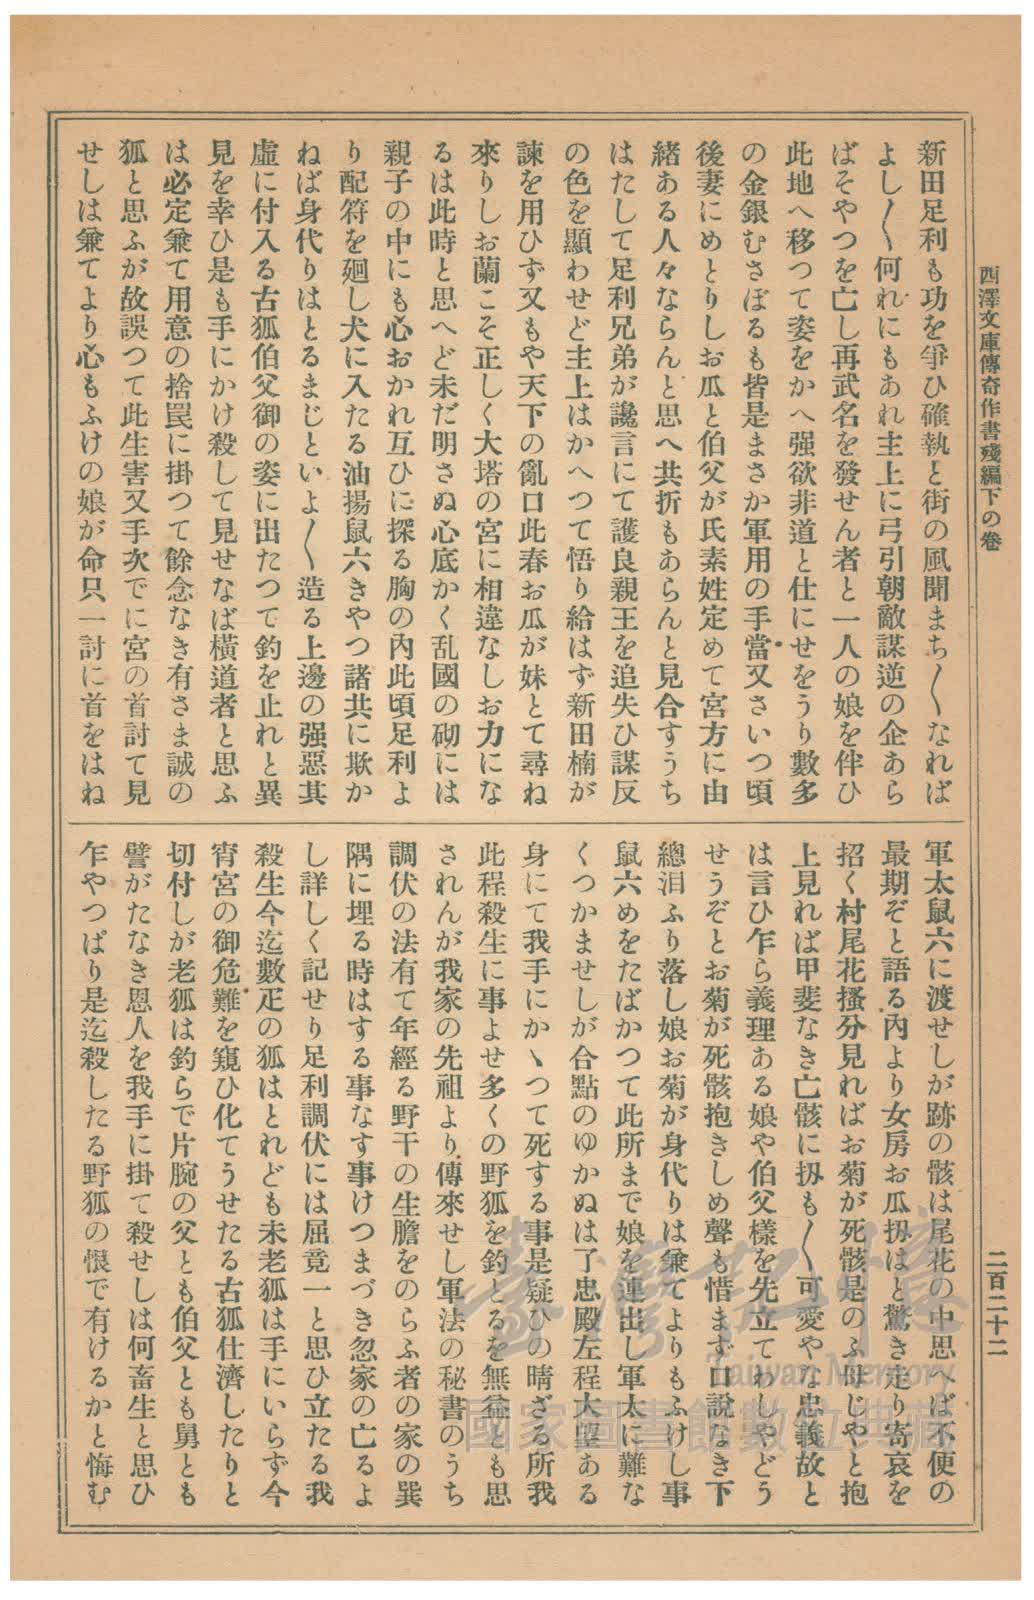 西澤文庫傳奇作書殘編下の卷
二百二十二
新田足利も功を爭ひ確執と街の風聞まち〳〵なれば
よし〳〵何れにもあれ主上に弓引朝敵謀逆の企あら
ばそやつを亡し再武名を發せん者と一人の娘を伴ひ
此地へ移つて姿をかへ强欲非道と仕にせをうり數多
の金銀むさぼるも皆是まさか軍用の手當又さいつ頃
後妻にめとりしお瓜と伯父が氏素姓定めて宮方に由
緖ある人々ならんと思へ共折もあらんと見合すうち
はたして足利兄弟が讒言にて護良親王を追失ひ謀反
の色を顯わせど主上はかへつて悟り給はず新田楠が
諫を用ひず又もや天下の亂口此春お瓜が妹とて尋ね
來りしお蘭こそ正しく大塔の宮に相違なしお力にな
るは此時と思へど未だ明さぬ心底かく乱國の砌には
親子の中にも心おかれ互ひに探る胸の內此頃足利よ
り配符を廻し犬に入たる油揚鼠六きやつ諸共に欺か
ねば身代りはとるまじといよ〳〵造る上邊の强惡其
虛に付入る古狐伯父御の姿に出たつて釣を止れと異
見を幸ひ是も手にかけ殺して見せなば橫道者と思ふ
は必定兼て用意の捨罠に掛つて餘念なき有さま誠の
狐と思ふが故誤つて此生害又手次でに宮の首討て見
せしは兼てより心もふけの娘が命只一討に首をはね
軍太鼠六に渡せしが跡の骸は尾花の中思へば不便の
最期ぞと語る內より女房お瓜扨はと驚き走り寄哀を
招く村尾花搔分見ればお菊が死骸是のふ母じやと抱
上見れば甲斐なき亡骸に扨も〳〵可愛やな忠義故と
は言ひ乍ら義理ある娘や伯父樣を先立てわしやどう
せうぞとお菊が死骸抱きしめ聲も惜まず口說なき下
總泪ふり落し娘お菊が身代りは兼てよりもふけし事
鼠六めをたばかつて此所まで娘を連出し軍太に難な
くつかませしが合點のゆかぬは了忠殿左程大望ある
身にて我手にかゝつて死する事是疑ひの晴ざる所我
此程殺生に事よせ多くの野狐を釣とるを無益とも思
されんが我家の先祖より傳來せし軍法の秘書のうち
調伏の法有て年經る野干の生膽をのらふ者の家の巽
隅に埋る時はする事なす事けつまづき忽家の亡るよ
し詳しく記せり足利調伏には屈竟一と思ひ立たる我
殺生今迄數疋の狐はとれども未老狐は手にいらず今
宵宮の御危難を窺ひ化てうせたる古狐仕濟したりと
切付しが老狐は釣らで片腕の父とも伯父とも舅とも
譬がたなき恩人を我手に掛て殺せしは何畜生と思ひ
乍やつぱり是迄殺したる野狐の恨で有けるかと悔む
臺灣記憶
Taiwan Memory
國家圖書館數位典藏